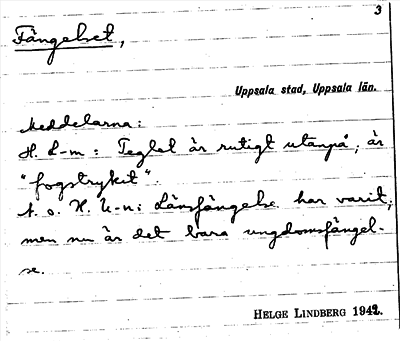 3
Fängelset,
Uppsala stad, Uppsala län.
Meddelarna:
H. L-m: Teglet är rutigt utanpå; är
"fogstrykit".
A. o. H. U-n: Länsfängelse har varit;
men nu är det bara ungdomsfängel-
se.
HELGE LINDBERG 1942.